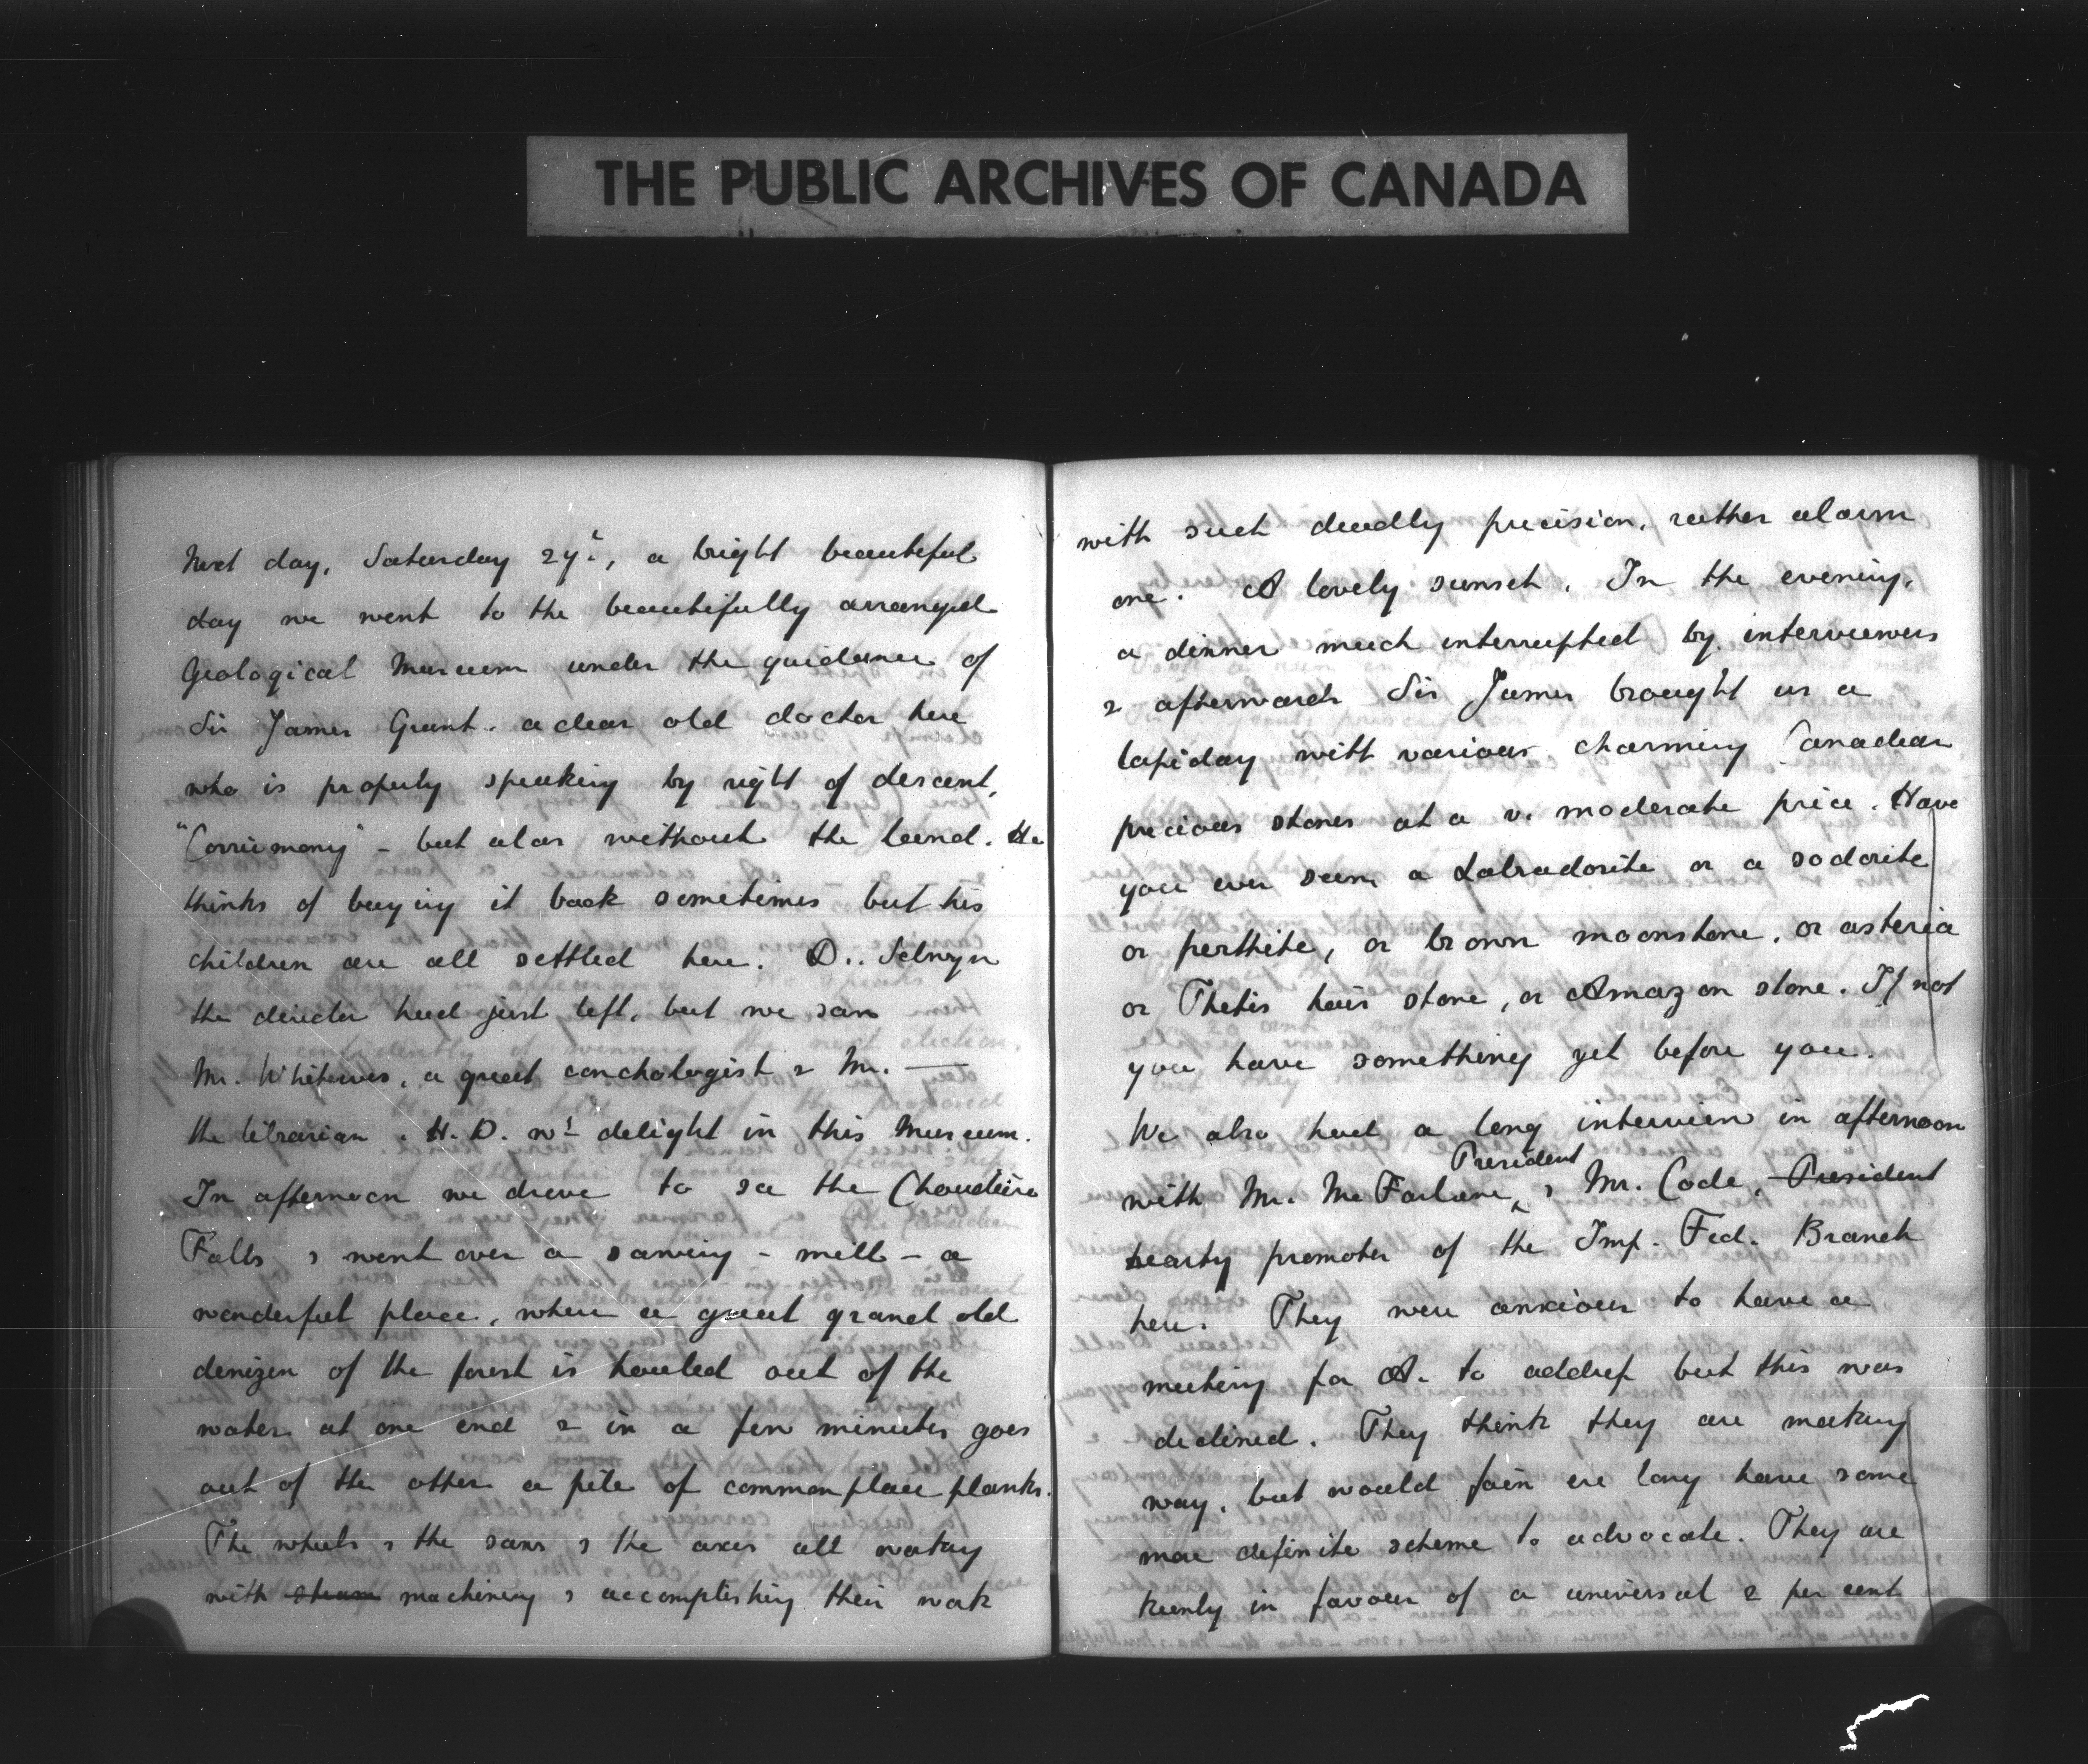 THE PUBLIC ARCHIVES OF CANADA
Next day, Saturday 27th, a bright beautiful
day we went to the beautifully arranged
Geological Museum under the guidance of
Sir James Grant. a dear old doctor here
who is properly speaking by right of descent,
"Corrimony" - but alas without the land. He
thinks of buying it back sometimes but his
children are all settled here. D.. Selwyn
the director had just left, but we saw
Mr. Whiteaves, a great conchologist & Mr. —
the librarian. H.D. wd delight in this Museum.
In afternoon we drove to see the Chaudière
Falls & went over a sawing - mill - a
wonderful place, where a great grand old
denizen of the forest is hauled out of the
water at one end & in a few minutes goes
out of the other a pile of commonplace planks.
The wheels & the saws & the axes all
with steam machinery & accomplishing their work
with such deadly precision, rather alarm
one. A lovely sunset. In the evening,
a dinner much interrupted by interviewers
& afterwards Sir James brought us a
lapiday with various charming Canadian
precious stones at a v. moderate price. Have
you ever seen a Labradorite or a sodorite
or perthite, or brown moonstone, or asteria
or Thetis hair stone, or Amazon stone. If not
you have something yet before you.
We also had a long interview in afternoon
President
with Mr. McFarlane, & Mr. Code, President
hearty promoter of the Imp. Fed. Branch
here. They were anxious to have a
meeting for A. to address but this was
declined. They think they are making
way, but would fain ere long have some
more definite scheme to advocate. They are
keenly in favour of a universal 2 per cent